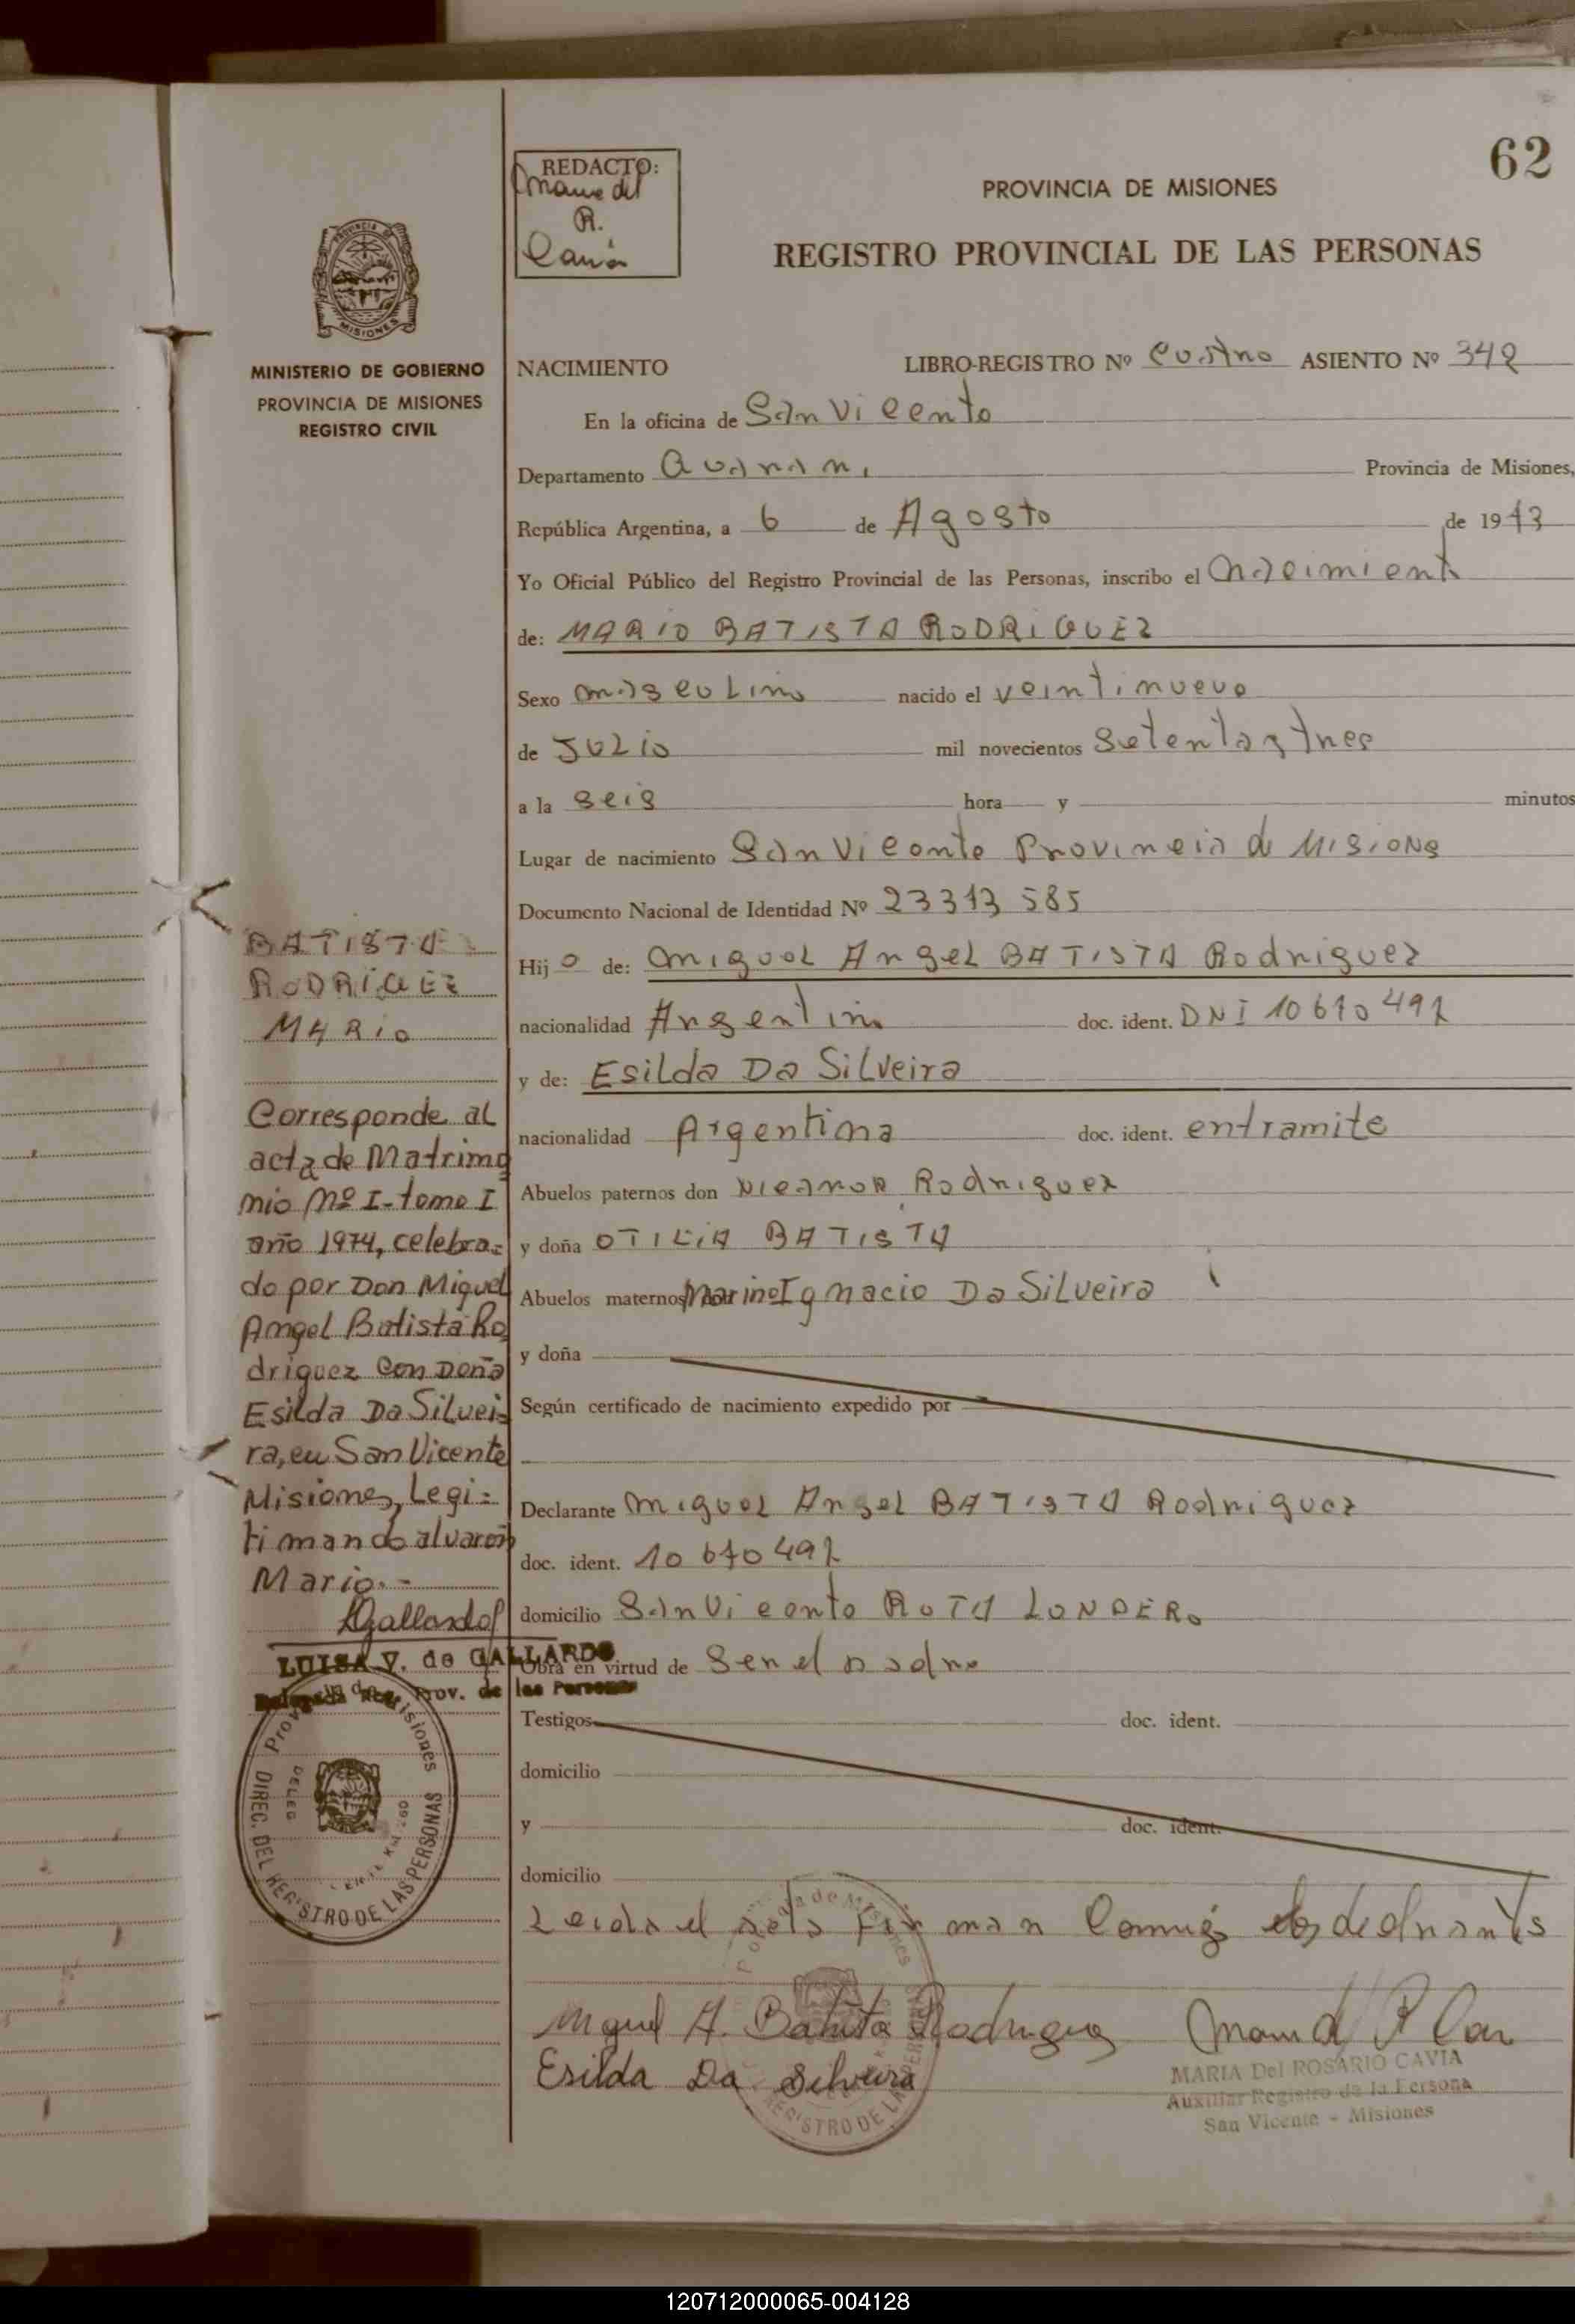 62
REDACTO:
R.
PROVINCIA DE MISIONES
REGISTRO PROVINCIAL DE LAS PERSONAS
MISIONES
MINISTERIO DE GOBIERNO
PROVINCIA DE MISIONES
REGISTRO CIVIL
NACIMIENTO LIBRO-REGISTRO Nº Cuatro ASIENTO Nº 342
En la oficina de San Vicente
Departamento Guarani Provincia de Misiones,
República Argentina, a 6 de Agosto de 1973
Yo Oficial Público del Registro Provincial de las Personas, inscribo el Nacimiento
de: MARIO BATISTA RODRIGUEZ
Sexo masculino nacido el veintinueve
de JULIO mil novecientos setenta y tres
a la seis hora y minutos
Lugar de nacimiento San Vicente Provincia de MISIONS
Documento Nacional de Identidad Nº 23 313 585
Hijo de: Miguel Angel BATISTA Rodriguez
nacionalidad Argentina doc. ident. DNI 10 670 497
y de: Esilda Da Silveira
nacionalidad Argentina doc. ident. entramite
Abuelos paternos don Nicanor Rodriguez
y doña OTILIA BATISTA
Abuelos maternos Marino Ignacio Da Silveira
y doña
Según certificado de nacimiento expedido por
Declarante Miguel Angel BATISTA Rodriguez
doc. ident. 10 670 497
domicilio San Vicente RUTA LONDERO
Obra en virtud de Ser el padre
Testigos doc. ident.
domicilio
y doc. ident.
domicilio
Leida el acta firman Conmigo los declarants
Miguel A. Batista Rodriguez
Esilda Da Silveira
MARIA Del ROSARIO CAVIA
Auxiliar Registro de la Persona
San Vicente - Misiones
BATISTA
RODRIGUEZ
MARIO
Corresponde al
acta de Matrimo
nio Nº I-tomo I
año 1974, celebra=
do por Don Miguel
Angel Batista Ro
driguez con Doña
Esilda Da Silvei=
ra, en San Vicente
Misiones, Legi=
timando al varon
Mario.-
LGallardo
LUISA V. de GALLARDO
Delegada Reg. Prov. de las Personas
Provincia de Misiones
DIREC. DEL REGISTRO DE LAS PERSONAS
120712000065-004128